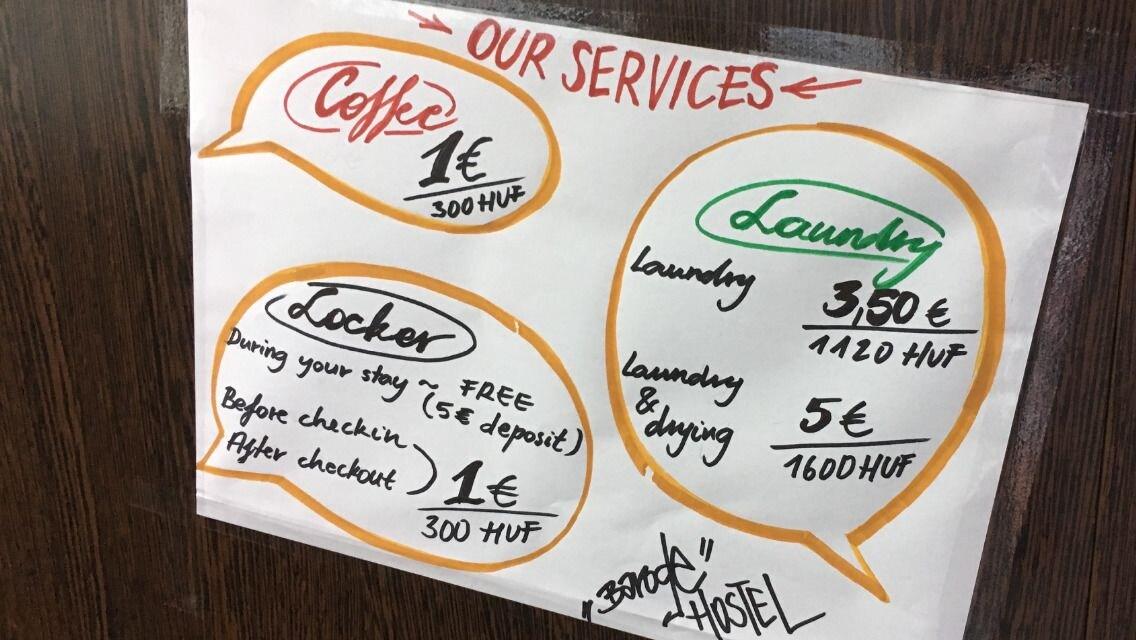 OUR SERVICES
Coffee
1€
300 HUF
Locker
During your stay ~ FREE
(5€ deposit)
Before checkin
After checkout
1€
300 HUF
Laundry
Laundry
3,50 €
1120 HUF
Laundry
&
drying
5€
1600 HUF
HOSTEL